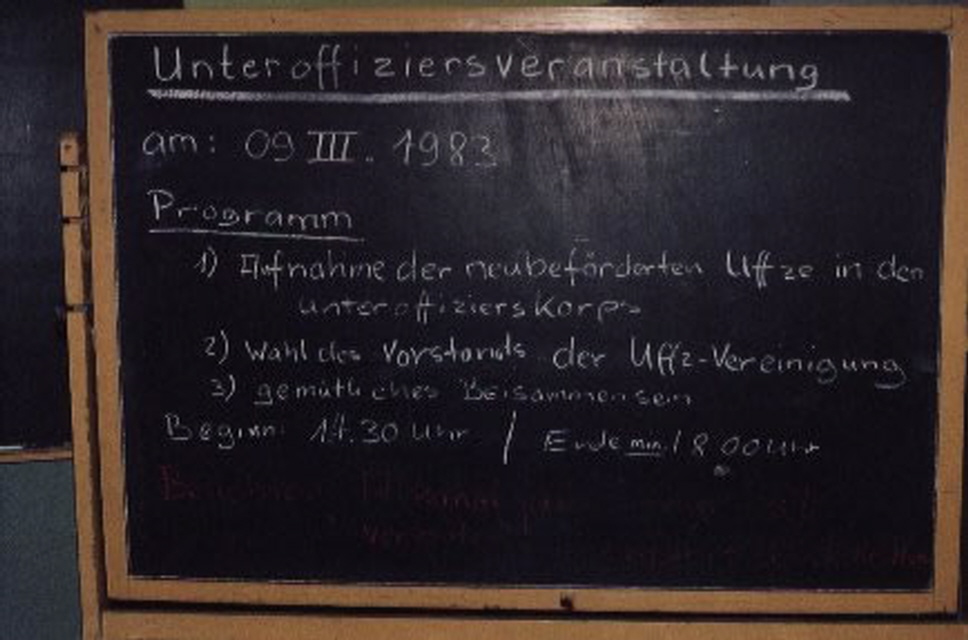 Unteroffiziersveranstaltung
am: 09 III. 1983
Programm
1) Aufnahme der neubeförderten Uffze in den
Unteroffizierskorps
2) Wahl des Vorstands der Uffz-Vereinigung
3) gemütliches Beisammensein
Beginn: 14.30 Uhr / Ende min. 18.00 Uhr